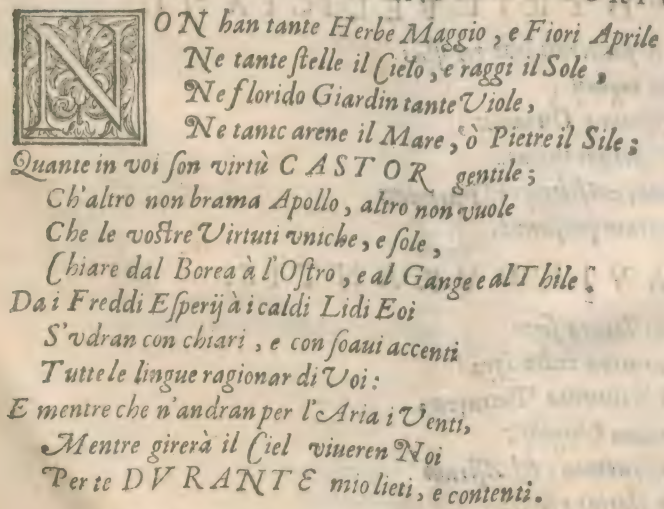 NON han tante Herbe Maggio, e Fiori Aprile
Ne tante ſtelle il Cielo, e raggi il Sole,
Ne florido Giardin tante Viole,
Ne tante arene il Mare, ò Pietre il Sile;
Quante in voi ſon virtù CASTOR gentile;
Ch'altro non brama Apollo, altro non vuole
Che le voſtre Virtuti vniche, e ſole,
Chiare dal Borea à l'Oſtro, e al Gange e al Thile:
Da i Freddi Eſperij à i caldi Lidi Eoi
S'vdran con chiari, e con ſoaui accenti
Tutte le lingue ragionar di Voi:
E mentre che n'andran per l'Aria i Venti,
Mentre girerà il Ciel viueren Noi
Per te DVRANTE mio lieti, e contenti.